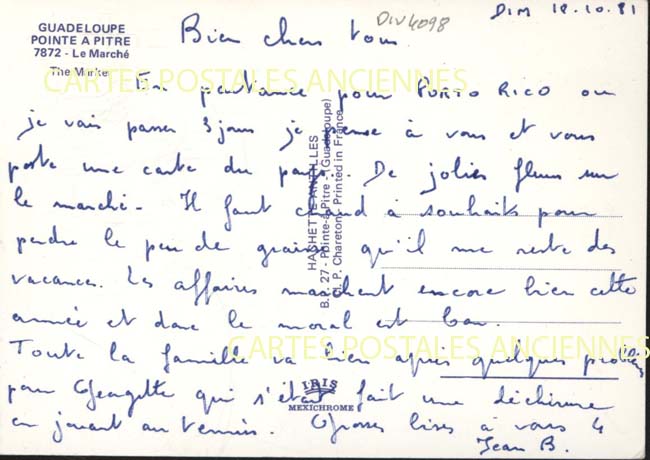 GUADELOUPE
POINTE A PITRE
7872 - Le Marché
The Market
DIV4098
DIM 18.10.81
Bien chers tous
CARTES POSTALES ANCIENNES
En partance pour PORTO RICO ou
je vais passer 3 jours je pense à vous et vous
poste une carte du pays. De jolies fleurs sur
le marché - Il fait chaud à souhaits pour
perdre le peu de graisse qu'il me reste des
vacances. Les affaires marchent encore bien cette
année et donc le moral est bon.
CARTES POSTALES ANCIENNES
Toute la famille va bien après quelques problèmes
pour Georgette qui s'était fait une déchirure
en jouant au tennis. Grosses bises à vous 4
Jean B.
HACHETTE ANTILLES
B.P. 27 - Pointe-à-Pitre - (Guadeloupe)
P. Charetony Printed in France
IRIS
MEXICHROME